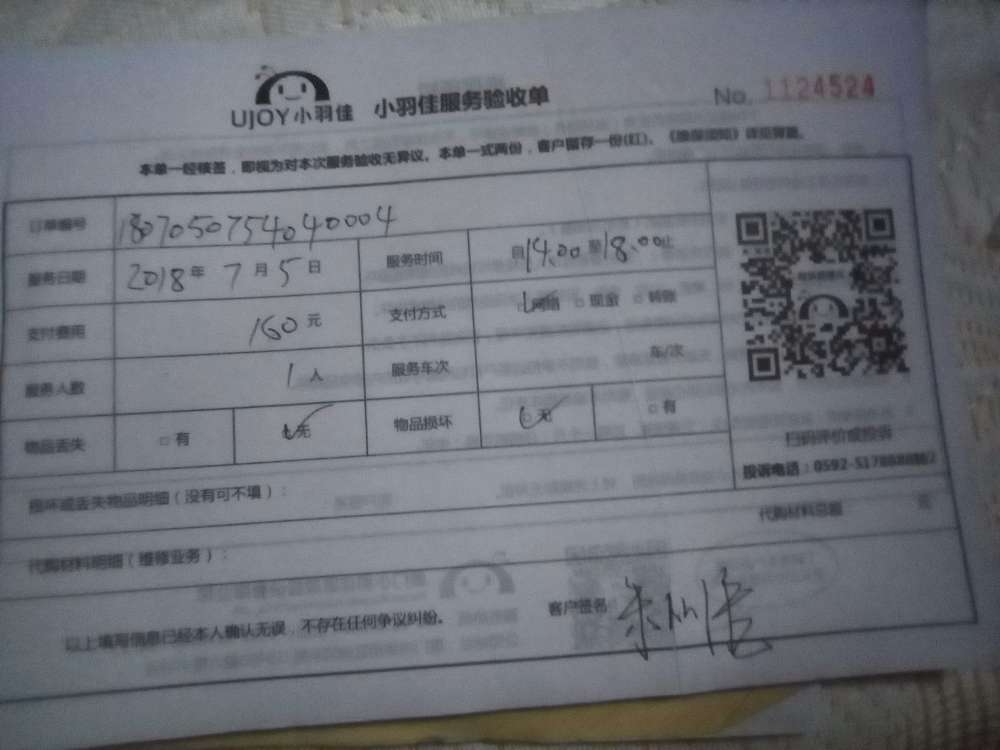 UJOY小羽佳 小羽佳服务验收单 No. 1124524
本单一经核签，即视为对本次服务验收无异议。本单一式两份，客户留存一份(红)。
订单编号 180705075404004​0004
服务日期 2018年 7月 5日 服务时间 自14:00至18:00止
支付费用 160元 支付方式 网络 □现金 □转账
服务人数 1人 服务车次 车/次
物品丢失 □有 无 物品损坏 无 □有
扫码评价或投诉
投诉电话：0592-
损坏或丢失物品明细（没有可不填）：
代购材料明细（维修业务）： 代购材料总额 元
以上填写信息已经本人确认无误，不存在任何争议纠纷。 客户签名